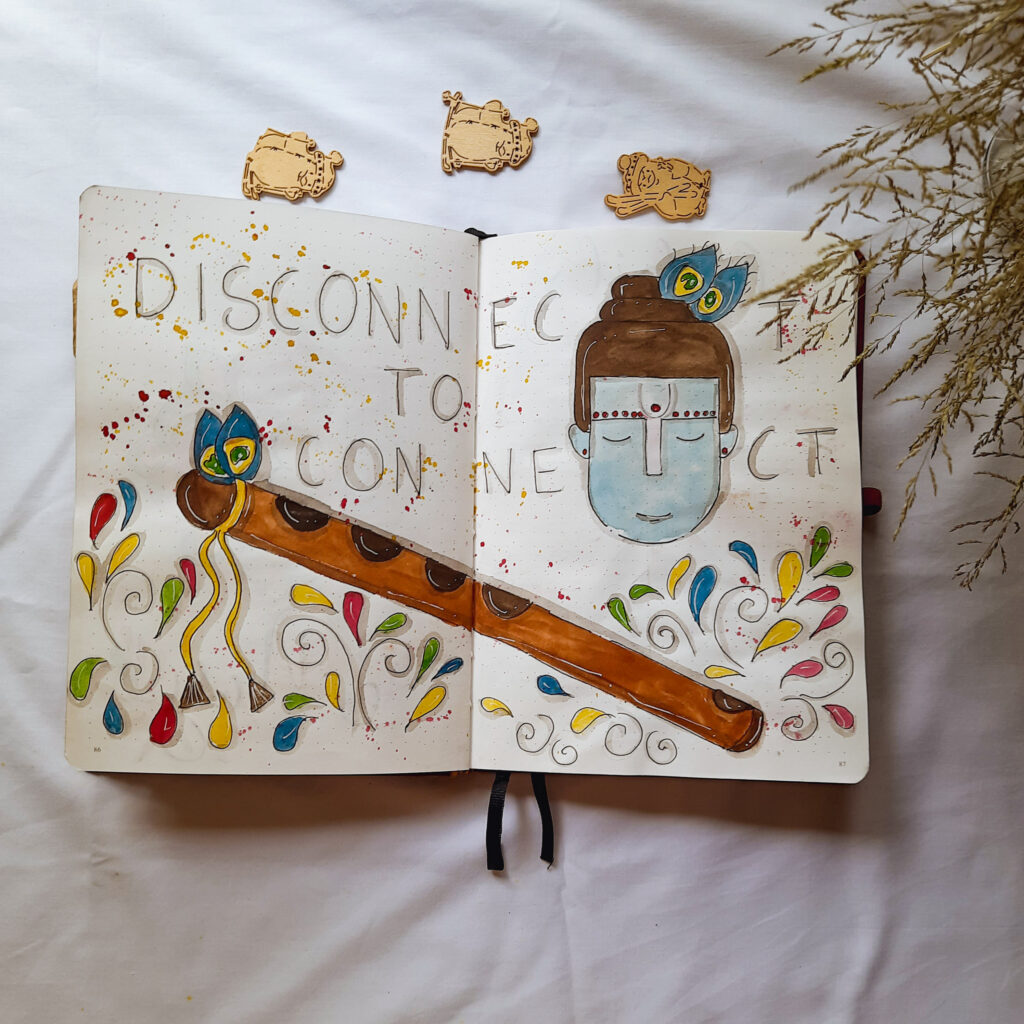 DISCONNECT
TO
CONNECT
86
87